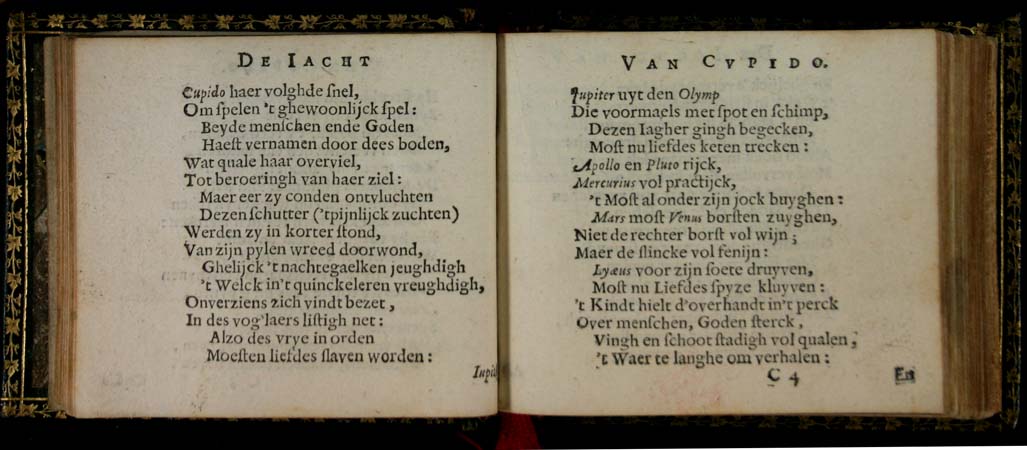 DE IACHT
Cupido haer volghde ſnel,
Om ſpelen 't ghewoonlijck ſpel:
Beyde menſchen ende Goden
Haeſt vernamen door dees boden,
Wat quale haar overviel,
Tot beroeringh van haer ziel:
Maer eer zy conden ontvluchten
Dezen ſchutter ('tpijnlijck zuchten)
Werden zy in korter ſtond,
Van zijn pylen wreed doorwond,
Ghelijck 't nachtegaelken jeughdigh
't Welck in't quinckeleren vreughdigh,
Onverziens zich vindt bezet,
In des vog'laers liſtigh net:
Alzo des vrye in orden
Moeſten liefdes ſlaven worden:
VAN CVPIDO.
Jupiter uyt den Olymp
Die voormaels met ſpot en ſchimp,
Dezen Iagher gingh begecken,
Moſt nu liefdes keten trecken:
Apollo en Pluto rijck,
Mercurius vol practijck,
't Moſt al onder zijn jock buyghen:
Mars moſt Venus borſten zuyghen,
Niet de rechter borſt vol wijn;
Maer de ſlincke vol fenijn:
Lyæus voor zijn ſoete druyven,
Moſt nu Liefdes ſpyze kluyven:
't Kindt hielt d'overhandt in't perck
Over menſchen, Goden ſterck,
Vingh en ſchoot ſtadigh vol qualen;
't Waer te langhe om verhalen:
C 4
En